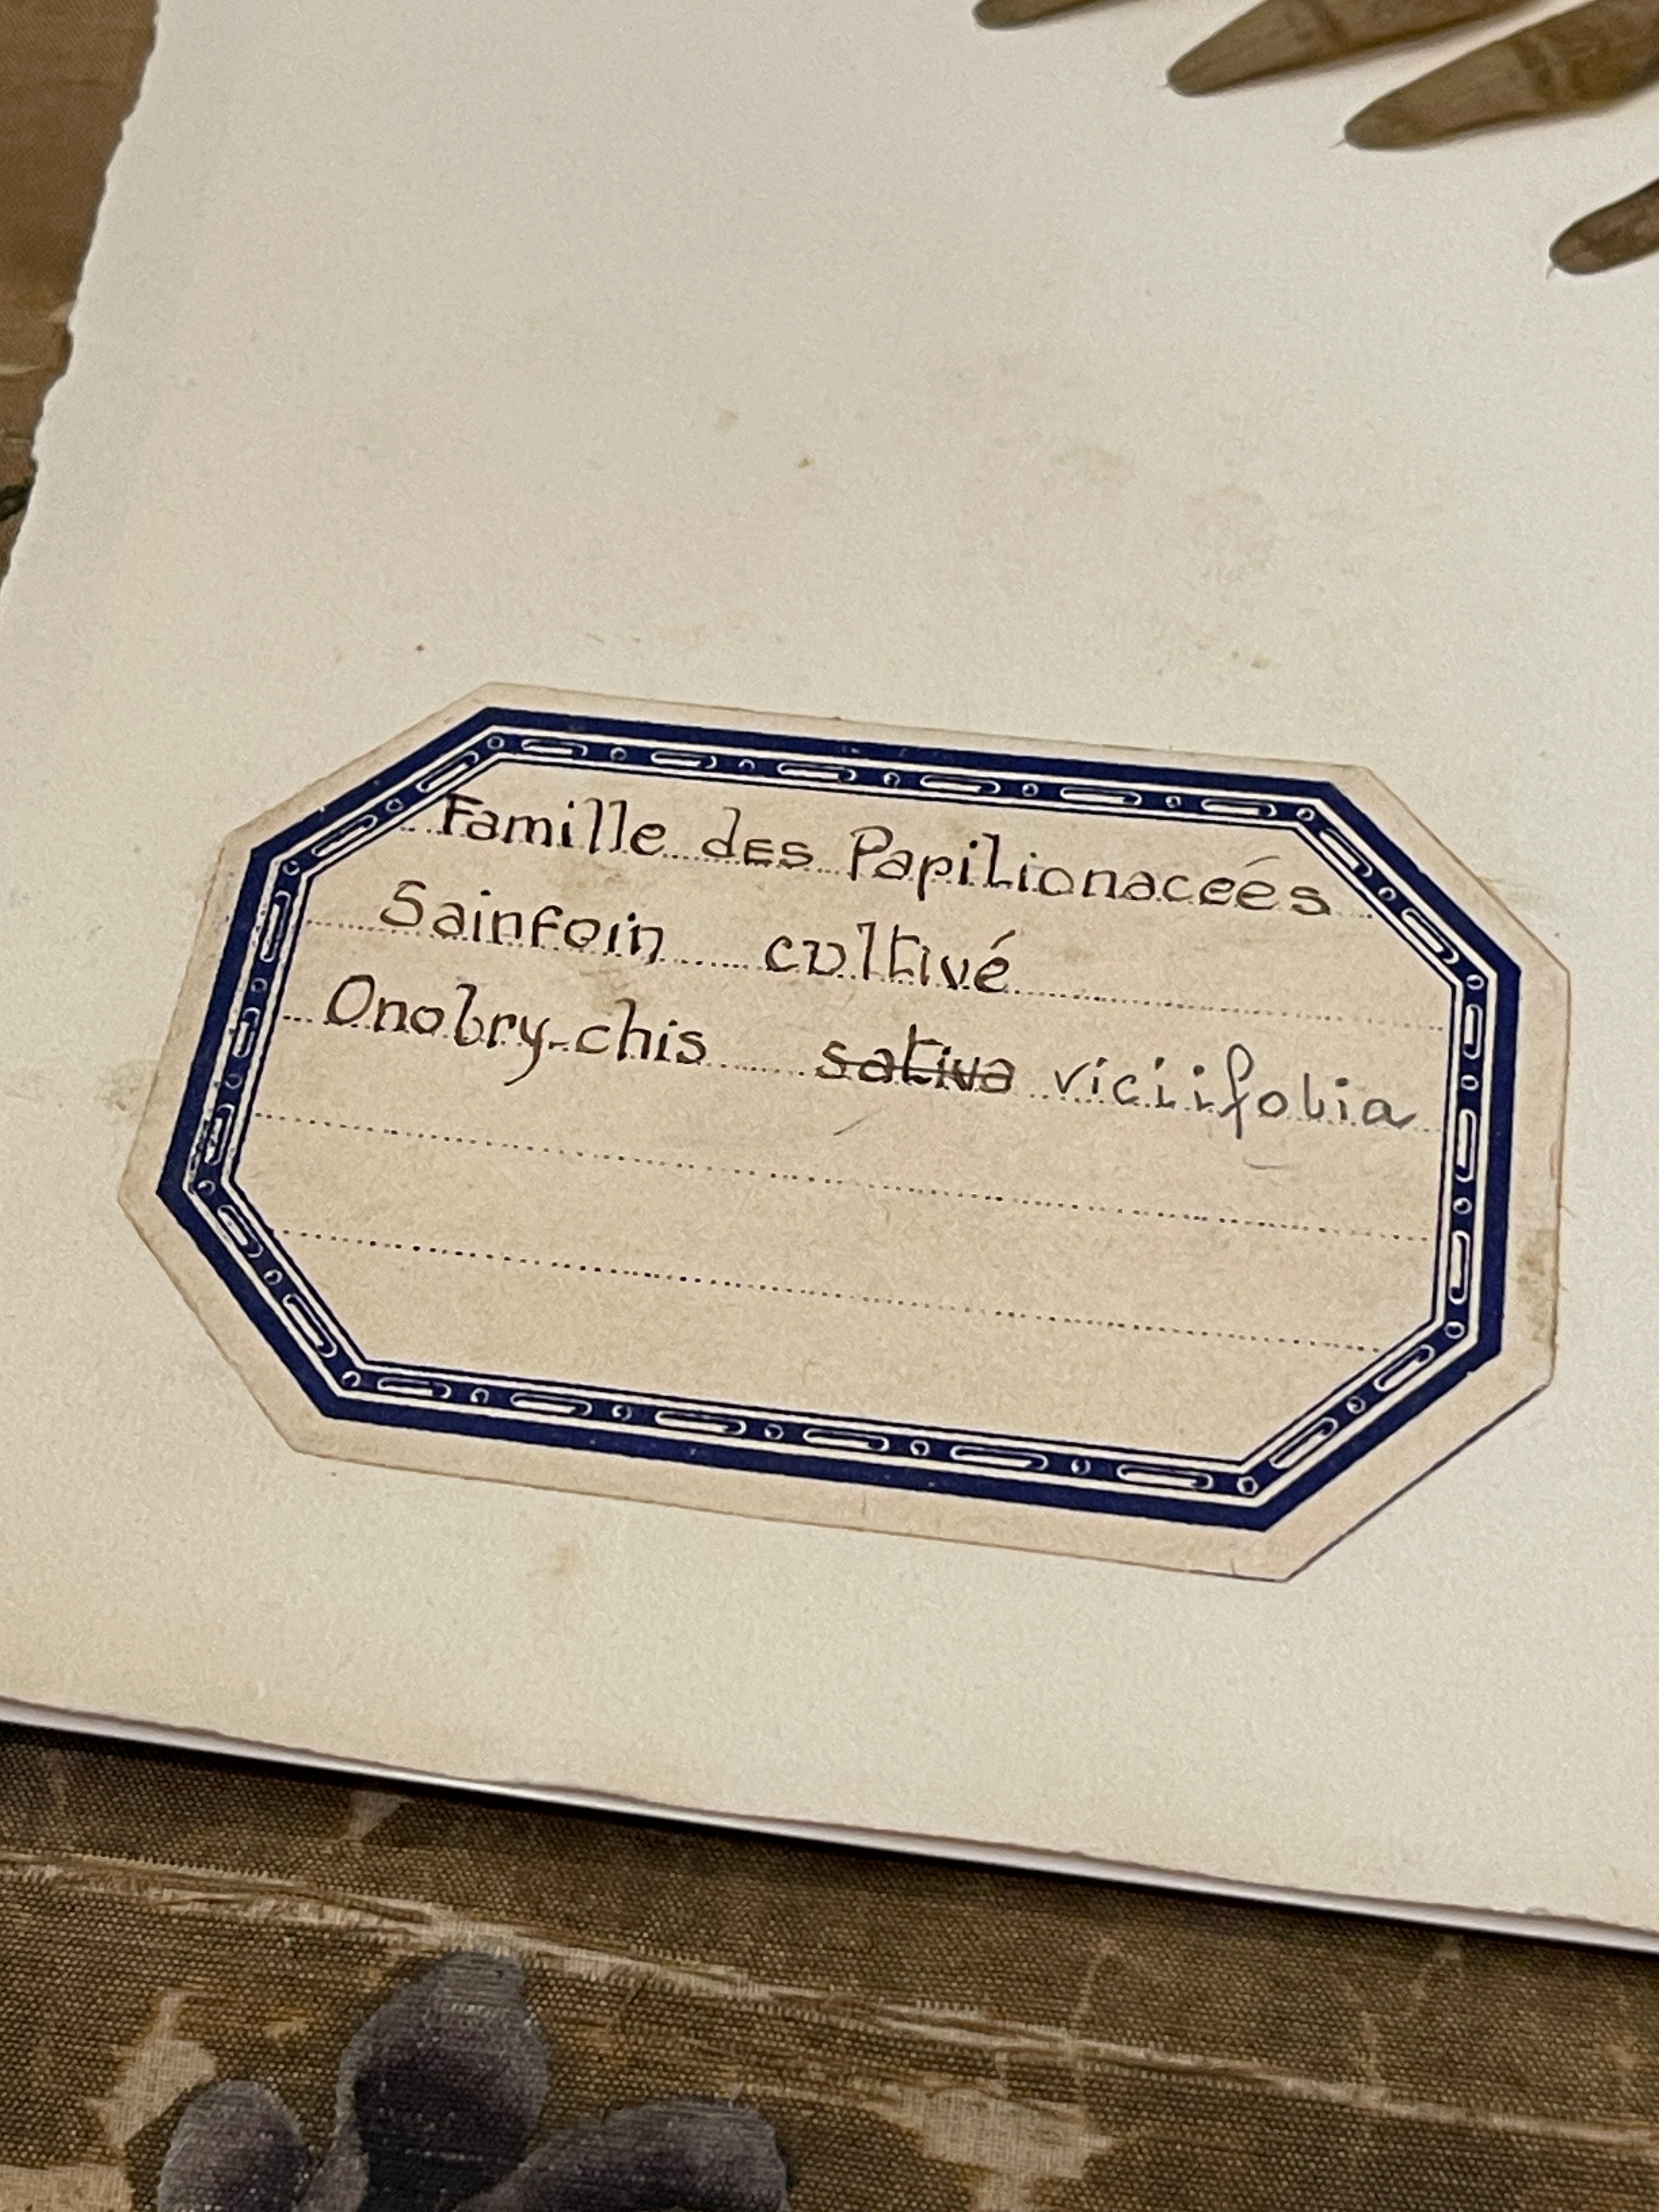 Famille des Papilionaceés
Sainfoin cultivé
Onobry-chis sativa viciifolia